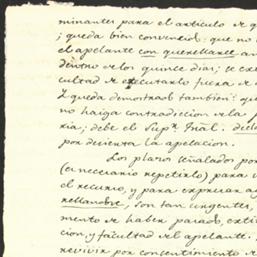 minantes para el articulo de q
; queda bien convencido: que no
el apelante con querellarse an
dentro de los quince dias; se ex
cultad de executarlo fuera de
Z queda demostrado tambien: qu
no haiga contradiccion de la p
ria; debe el Supr. Tral. decl
por desierta la apelacion.
Los plazos señalados por
(es necesario repetirlo) para
el recurso, y para expresar ag
rellandose, son tan urgentes,
mento de haber pasado, exti
cion, y facultad del apelante.
revivir por consentimiento de